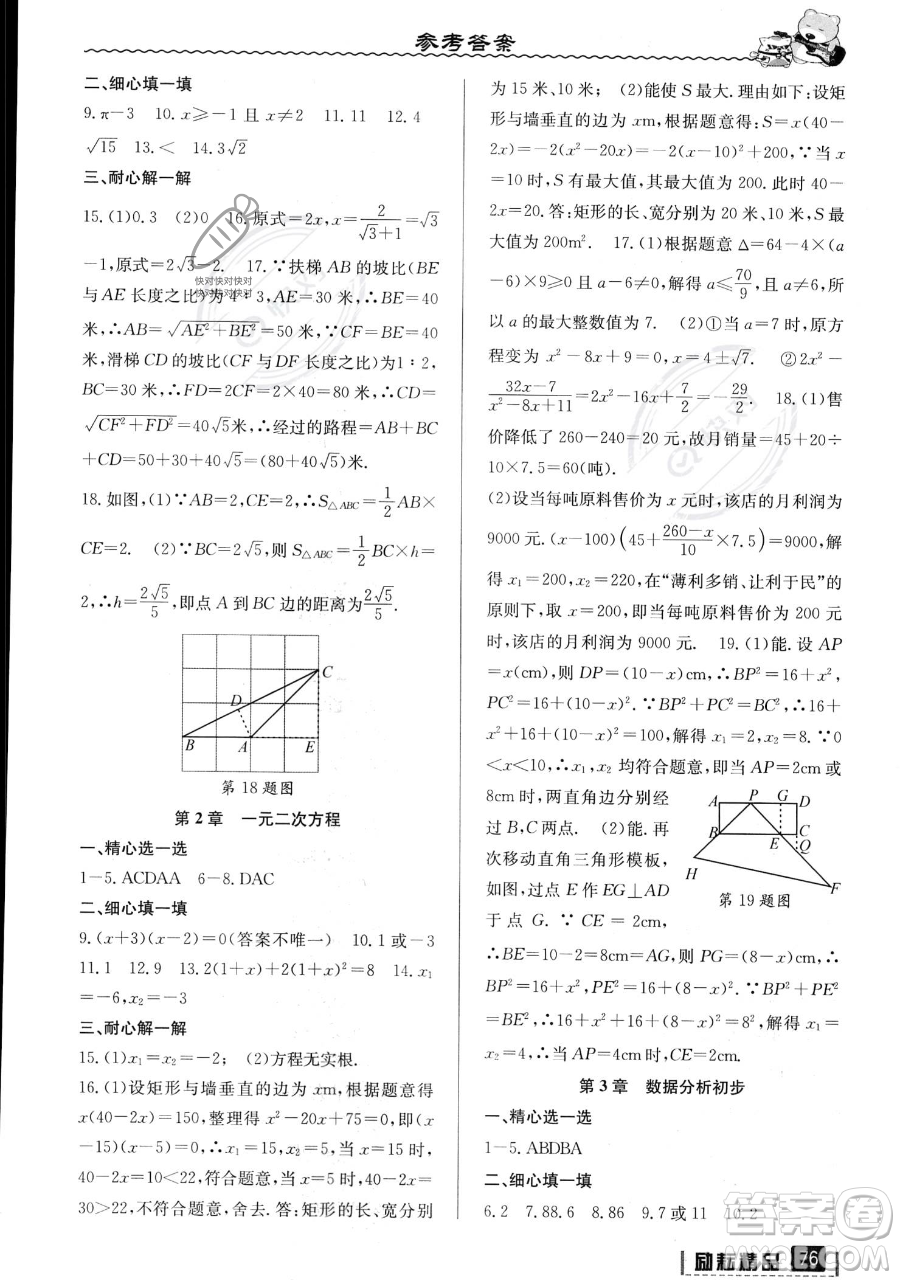 参考答案
二、细心填一填
9.π－3　10.x⩾－1且x≠2　11.11　12.4
√15　13.<　14.3√2
三、耐心解一解
15.(1)0.3　(2)0　16.原式＝2x,x＝2/(√3+1)＝√3
－1,原式＝2√3－2.　17.∵扶梯AB的坡比(BE
与AE长度之比)为4∶3,AE＝30米,∴BE＝40
米,∴AB＝√(AE²＋BE²)＝50米.∵CF＝BE＝40
米,滑梯CD的坡比(CF与DF长度之比)为1∶2,
BC＝30米,∴FD＝2CF＝2×40＝80米,∴CD＝
√(CF²＋FD²)＝40√5米,∴经过的路程＝AB＋BC
＋CD＝50＋30＋40√5＝(80＋40√5)米.
18.如图,(1)∵AB＝2,CE＝2,∴S△ABC＝1/2 AB×
CE＝2.　(2)∵BC＝2√5,则S△ABC＝1/2 BC×h＝
2,∴h＝2√5/5,即点A到BC边的距离为2√5/5.
C
D
B A E
第18题图
第2章　一元二次方程
一、精心选一选
1－5.ACDAA　6－8.DAC
二、细心填一填
9.(x＋3)(x－2)＝0(答案不唯一)　10.1或－3
11.1　12.9　13.2(1＋x)＋2(1＋x)²＝8　14.x₁
＝－6,x₂＝－3
三、耐心解一解
15.(1)x₁＝x₂＝－2；(2)方程无实根.
16.(1)设矩形与墙垂直的边为xm,根据题意得
x(40－2x)＝150,整理得x²－20x＋75＝0,即(x
－15)(x－5)＝0,∴x₁＝15,x₂＝5,当x＝15时,
40－2x＝10<22,符合题意,当x＝5时,40－2x＝
30>22,不符合题意,舍去.答:矩形的长、宽分别
为15米、10米；(2)能使S最大.理由如下:设矩
形与墙垂直的边为xm,根据题意得:S＝x(40－
2x)＝－2(x²－20x)＝－2(x－10)²＋200,∵当x
＝10时,S有最大值,其最大值为200.此时40－
2x＝20.答:矩形的长、宽分别为20米、10米,S
最大值为200m².　17.(1)根据题意Δ＝64－4×(a
－6)×9⩾0且a－6≠0,解得a⩽70/9且a≠6,所
以a的最大整数值为7.　(2)①当a＝7时,原方
程变为x²－8x＋9＝0,解得x＝4±√7.　②2x²
－(32x－7)/(x²－8x＋11)＝2x²－16x＋7/2＝－29/2.　18.(1)售
价降低了260－240＝20元,故月销量＝45＋20÷
10×7.5＝60(吨).
(2)设当每吨原料售价为x元时,该店的月利润为
9000元.(x－100)(45＋(260－x)/10×7.5)＝9000,解
得x₁＝200,x₂＝220,在“薄利多销、让利于民”的
的原则下,取x＝200,即当每吨原料售价为200元
时,该店的月利润为9000元.　19.(1)能.设AP
＝x(cm),则DP＝(10－x)cm,∴BP²＝16＋x²,
PC²＝16＋(10－x)².∵BP²＋PC²＝BC²,∴16＋
x²＋16＋(10－x)²＝100,解得x₁＝2,x₂＝8.∵0
<x<10,∴x₁,x₂均符合题意,即当AP＝2cm或
8cm时,两直角边分别经
过B,C两点.　(2)能.再
次移动直角三角形模板,
如图,过点E作EG⊥AD
于点G.∵CE＝2cm,
A P G D
B E C
Q
H
F
第19题图
∴BE＝10－2＝8cm＝AG,∴PG＝(8－x)cm,∴
BP²＝16＋x²,PE²＝16＋(8－x)².∵BP²＋PE²＝
BE²,∴16＋x²＋16＋(8－x)²＝8²,解得x₁＝
x₂＝4,∴当AP＝4cm时,CE＝2cm.
第3章　数据分析初步
一、精心选一选
1－5.ABDBA
二、细心填一填
6.2　7.88.6　8.86　9.7或11　10.2
励耘精品 76
快对快对快对
快对快对快对
答案圈